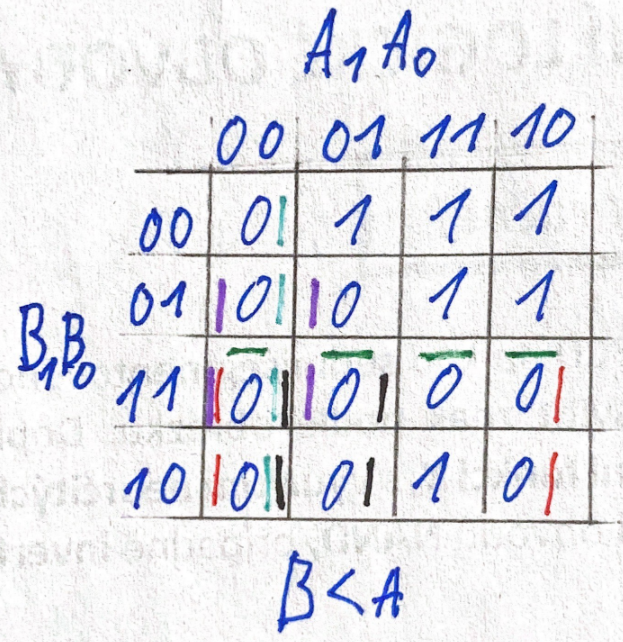 A₁A₀
00 01 11 10
00 0 1 1 1
01 0 0 1 1
B₁B₀
11 0 0 0 0
10 0 0 1 0
B<A